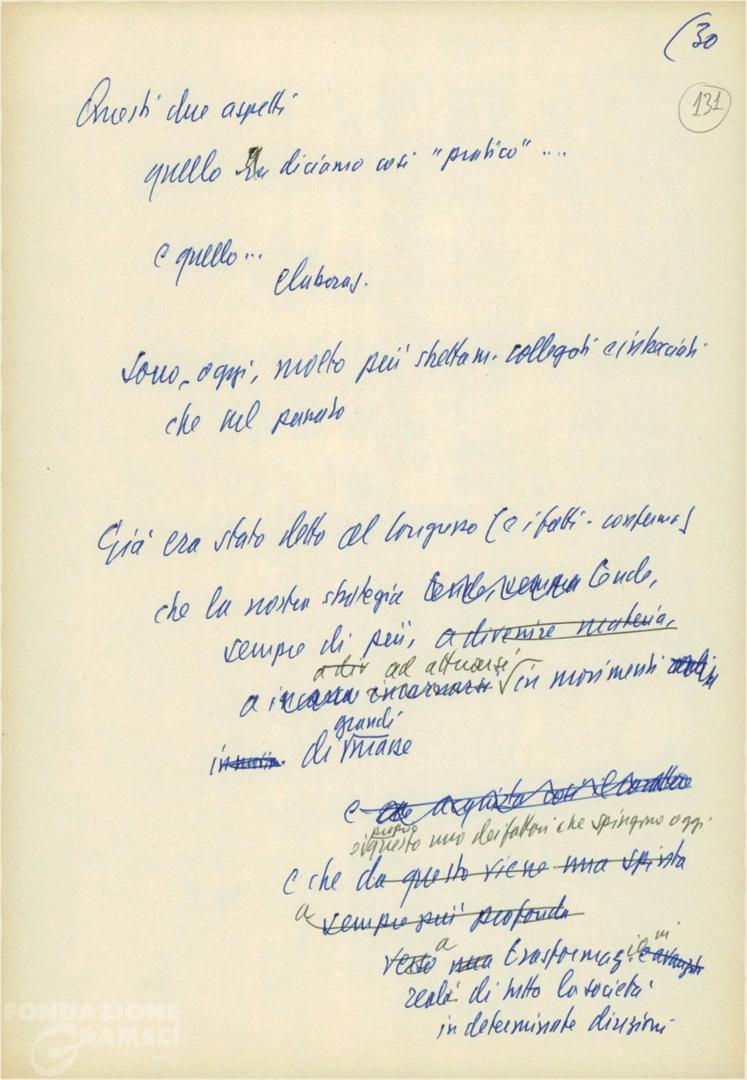 (30
131
Questi due aspetti
quello diciamo così "pratico" ....
e quello...
elaboraz.
sono, oggi, molto più strettam. collegati e intrecciati
che nel passato
Già era stato detto al Congresso (e i fatti confermano)
che la nostra strategia tende, sempre tende,
sempre di più, a divenire materia,
a div ad attuarsi
a incarnarsi in movimenti
grandi
di masse
e che acquista così il carattere
proprio
è questo uno dei fattori che spingono oggi
e che da questo viene una spinta
a sempre più profonda
verso una a trasformaz ioni e avanzat
reali di tutta la società
in determinate direzioni
FONDAZIONE
GRAMSCI